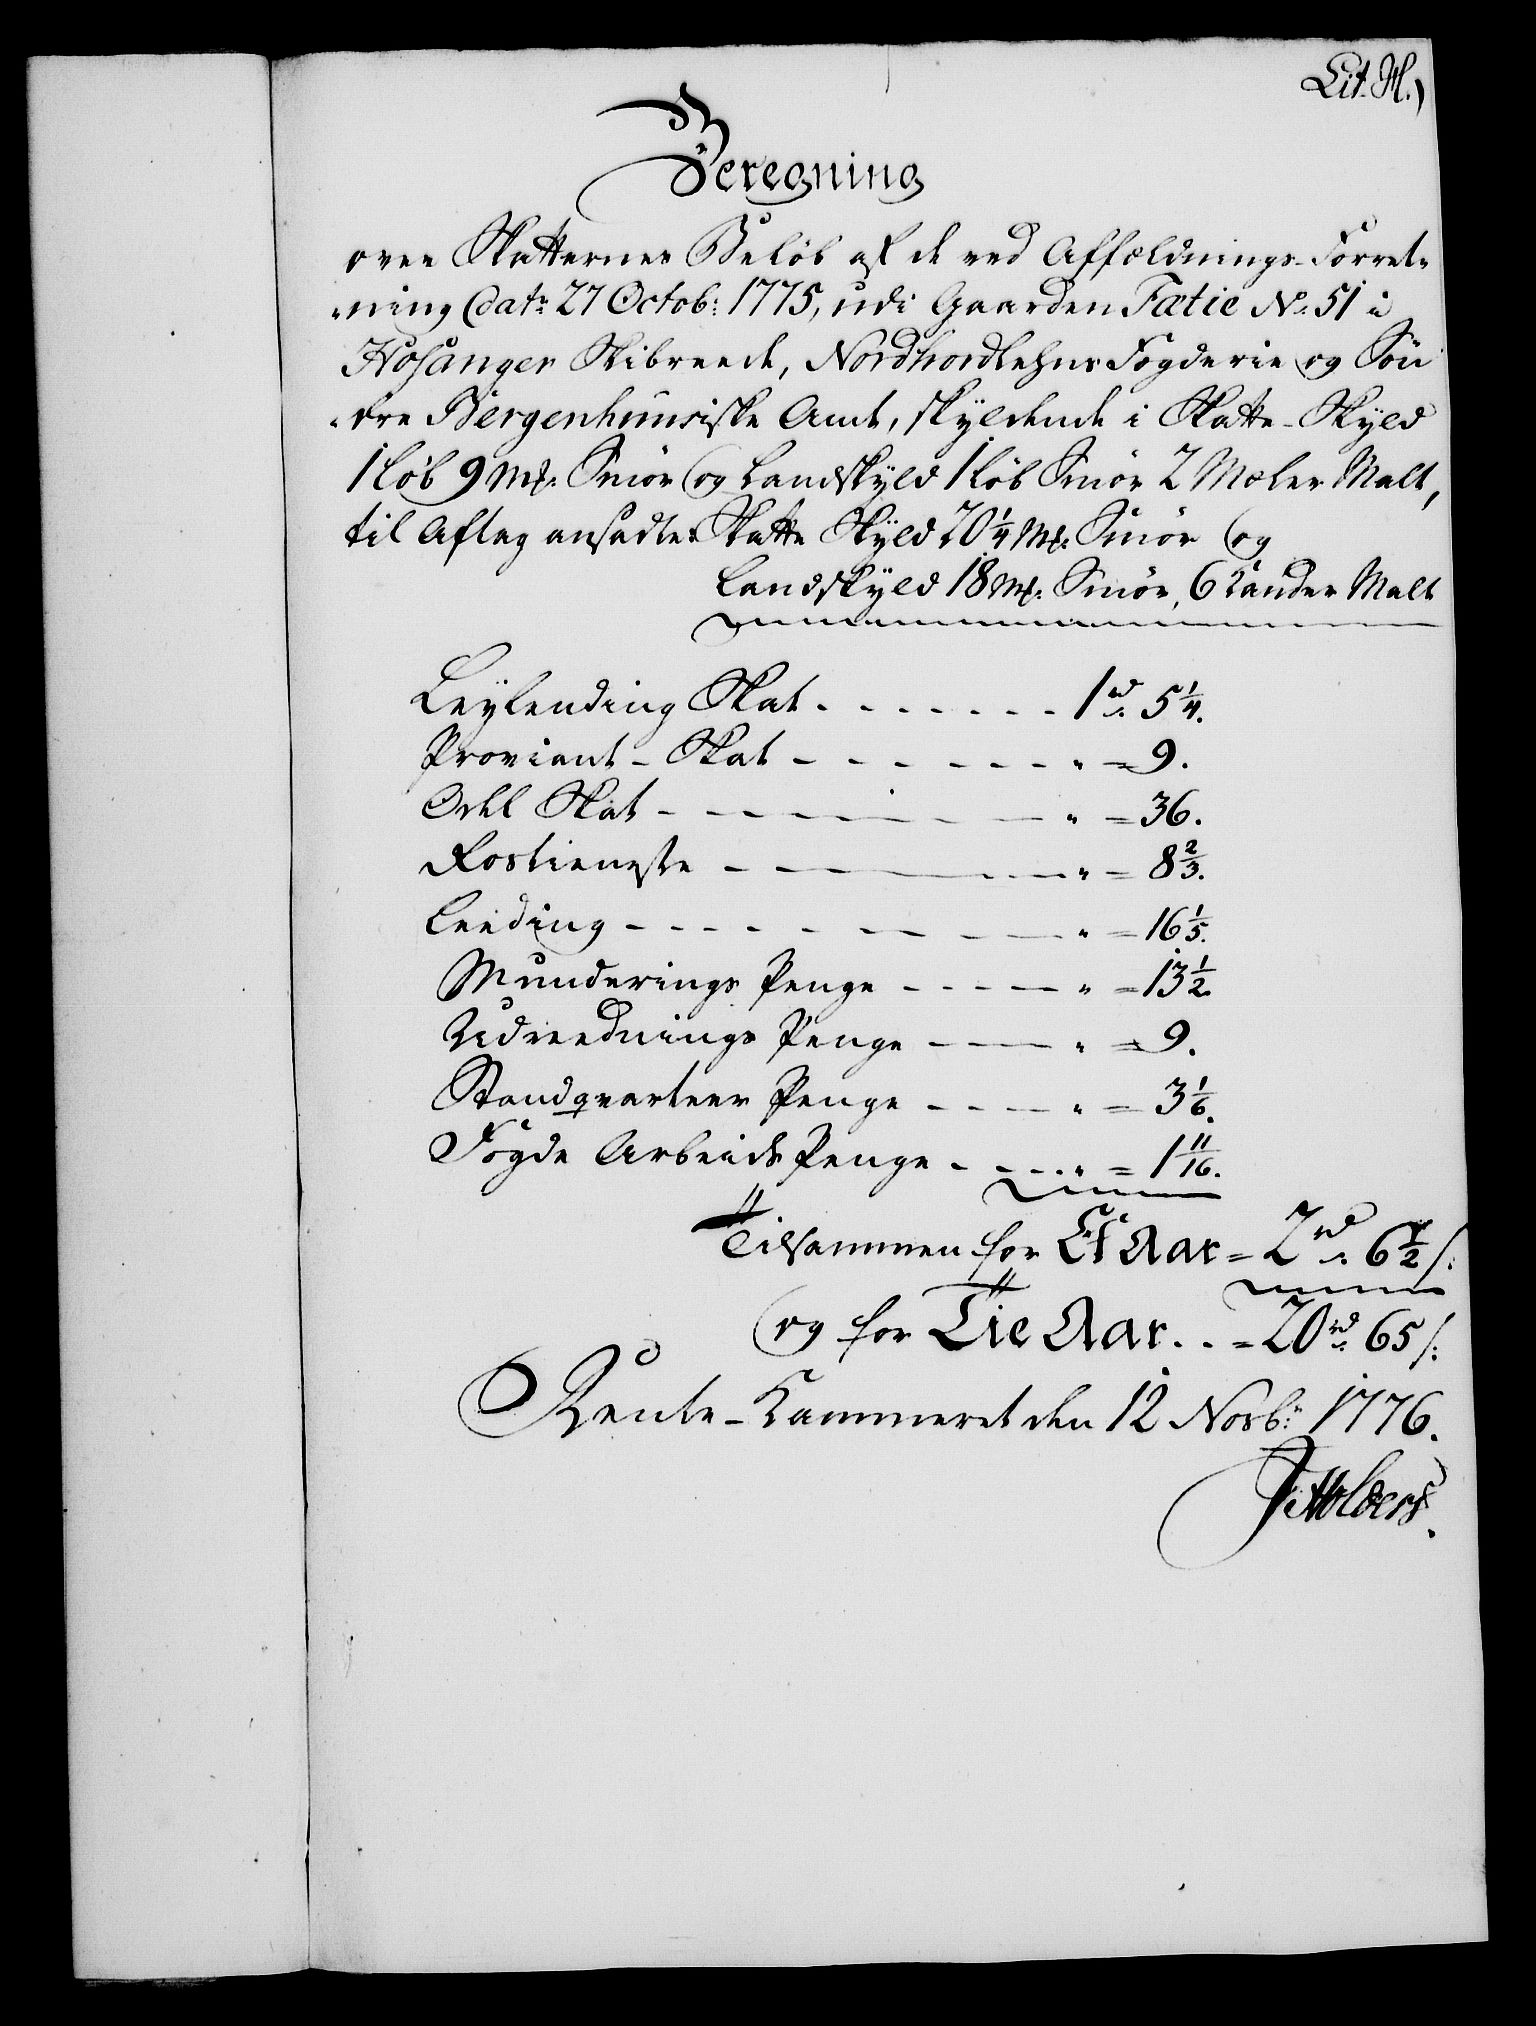 Lit. H.)
Beregning
over Skatternes Beløb af de ved Affældnings-Forret-
-ning dat: 27 Octob: 1775, udi Gaarden Fætie No. 51 i
Hosanger Skibreede, Nordhordlehns Fogderie og Søn
-dre Bergenhuusiske Amt, skyldende i Skatte-Skyld
1 Løb 9 Mk: Smør og Landskyld 1 Løb Smør 2 Mæler Malt,
til Aftag ansadtes Skatte Skyld 20 1/4 Mk: Smør og
Landskyld 18 Mk: Smør, 6 Kander Malt
Leylending Skat - - - - - - - 1 rd. 5 1/4.
Proviant-Skat - - - - - - - " = 9.
Odel Skat - - - - - - - " = 36.
Rostieneste - - - - " = 8 2/3.
Leeding - - - - - - - " = 16 1/5.
Munderings Penge - - - - " = 13 1/2
Udreednings Penge - - - " = 9.
Standqvarteer Penge - - - - " = 3 1/6.
Fogde Arbeids Penge - - - - " = 1 11/16.
Tilsammen for Et Aar = 2 rd. 6 1/2 s:
og for Tie Aar. . = 20 rd. 65 s:
Rente-Kammeret den 12 Novb: 1776.